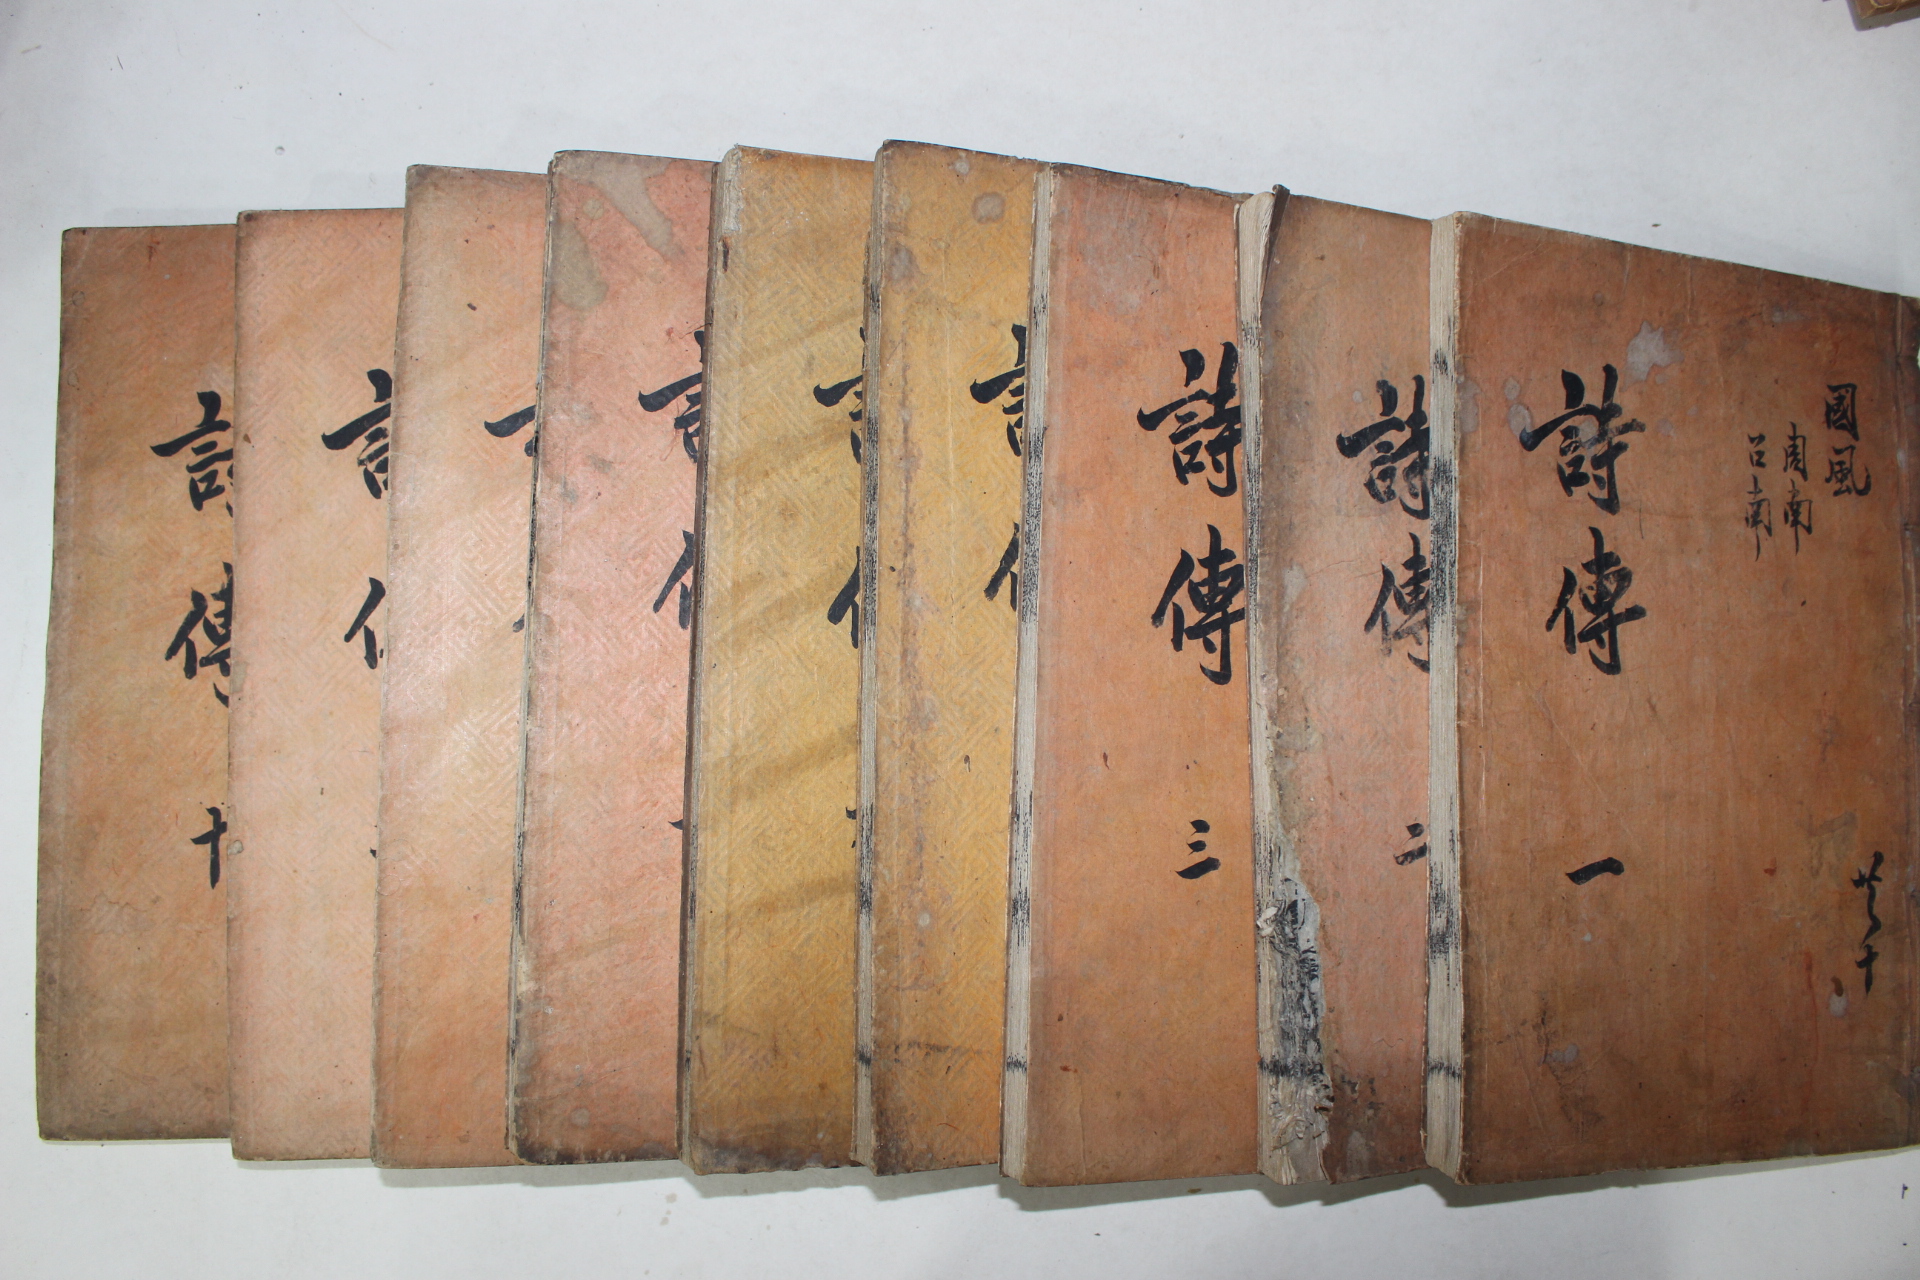 國風
周南
召南
共十
詩傳 一
詩傳 二
詩傳 三
詩傳
詩傳
詩傳
詩傳
詩傳 十